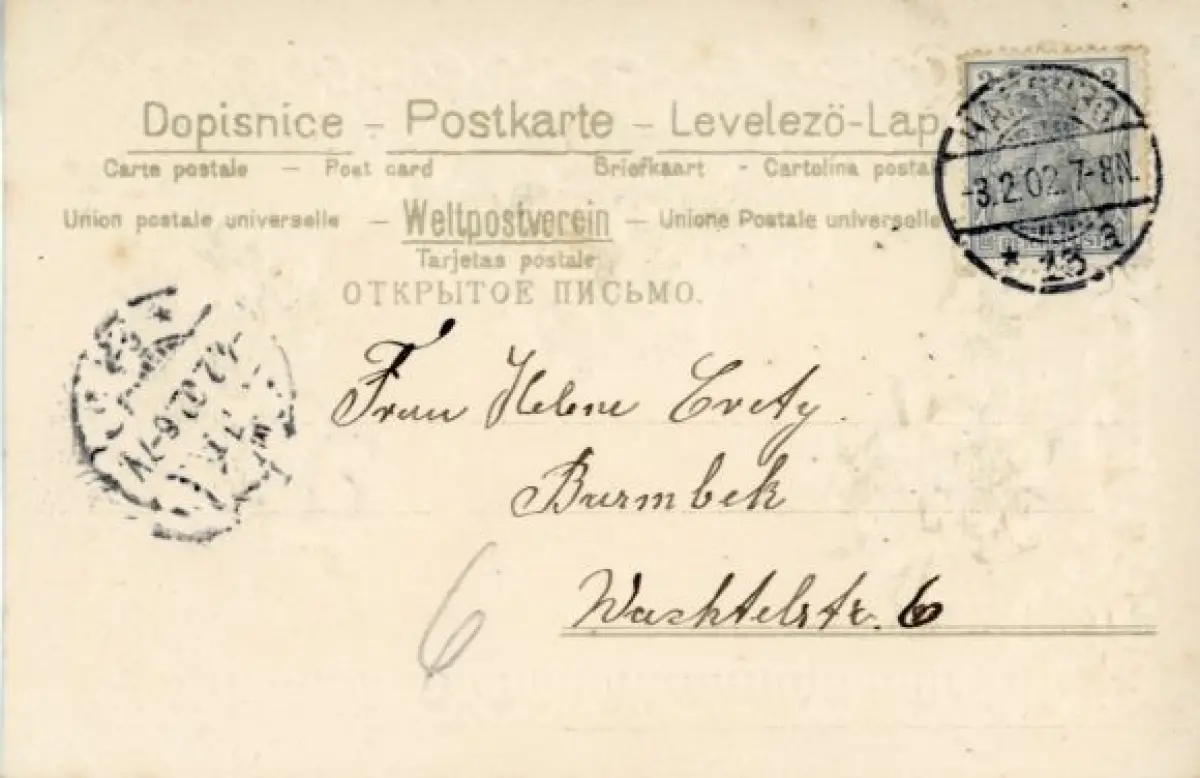 Dopisnice – Postkarte – Levelezö-Lap
Carte postale — Post card Briefkaart - Cartolina postale
Union postale universelle — Weltpostverein — Unione Postale universelle
Tarjetas postale
ОТКРЫТОЕ ПИСЬМО.
3 3
HAMBURG
-3.2.02.7-8N.
* 13 a
Frau Helene Evety.
Barmbek
Wachtelstr. 6
6